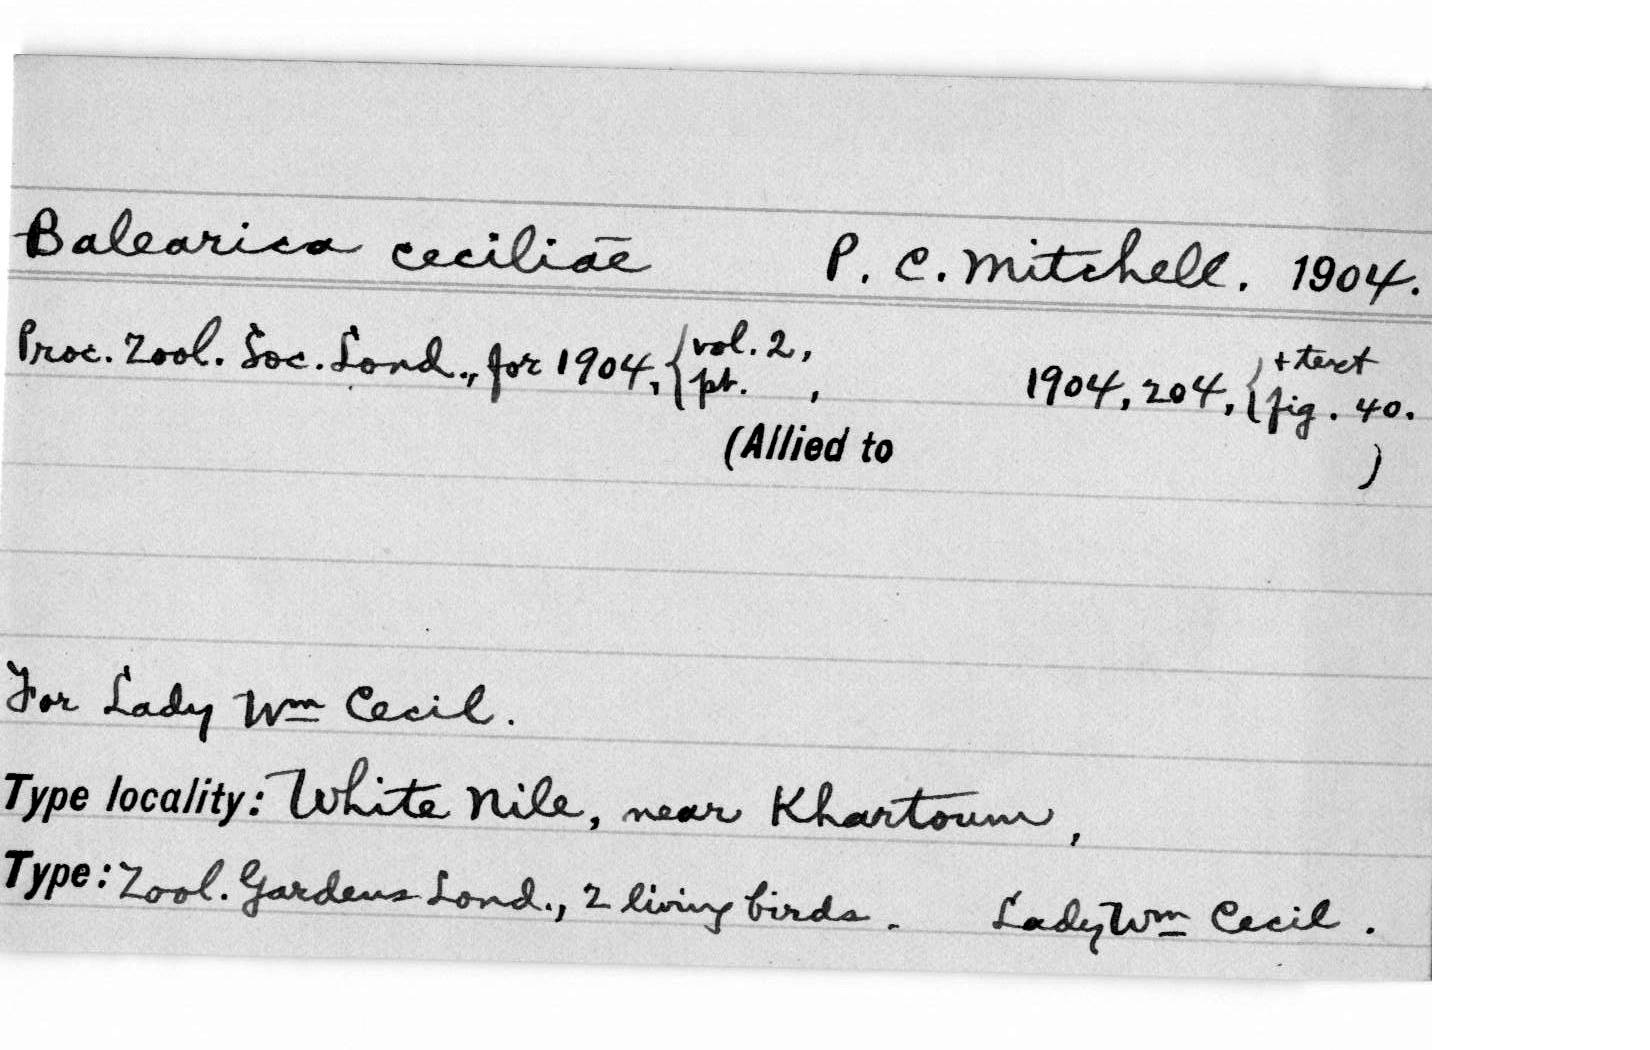 Balearica ceciliae P. C. Mitchell. 1904.
Proc. Zool. Soc. Lond., for 1904, {vol. 2, pt. , 1904, 204, {+ text fig. 40.
(Allied to )
For Lady Wm Cecil.
Type locality: White Nile, near Khartoum,
Type: Zool. Gardens Lond., 2 living birds. Lady Wm Cecil.